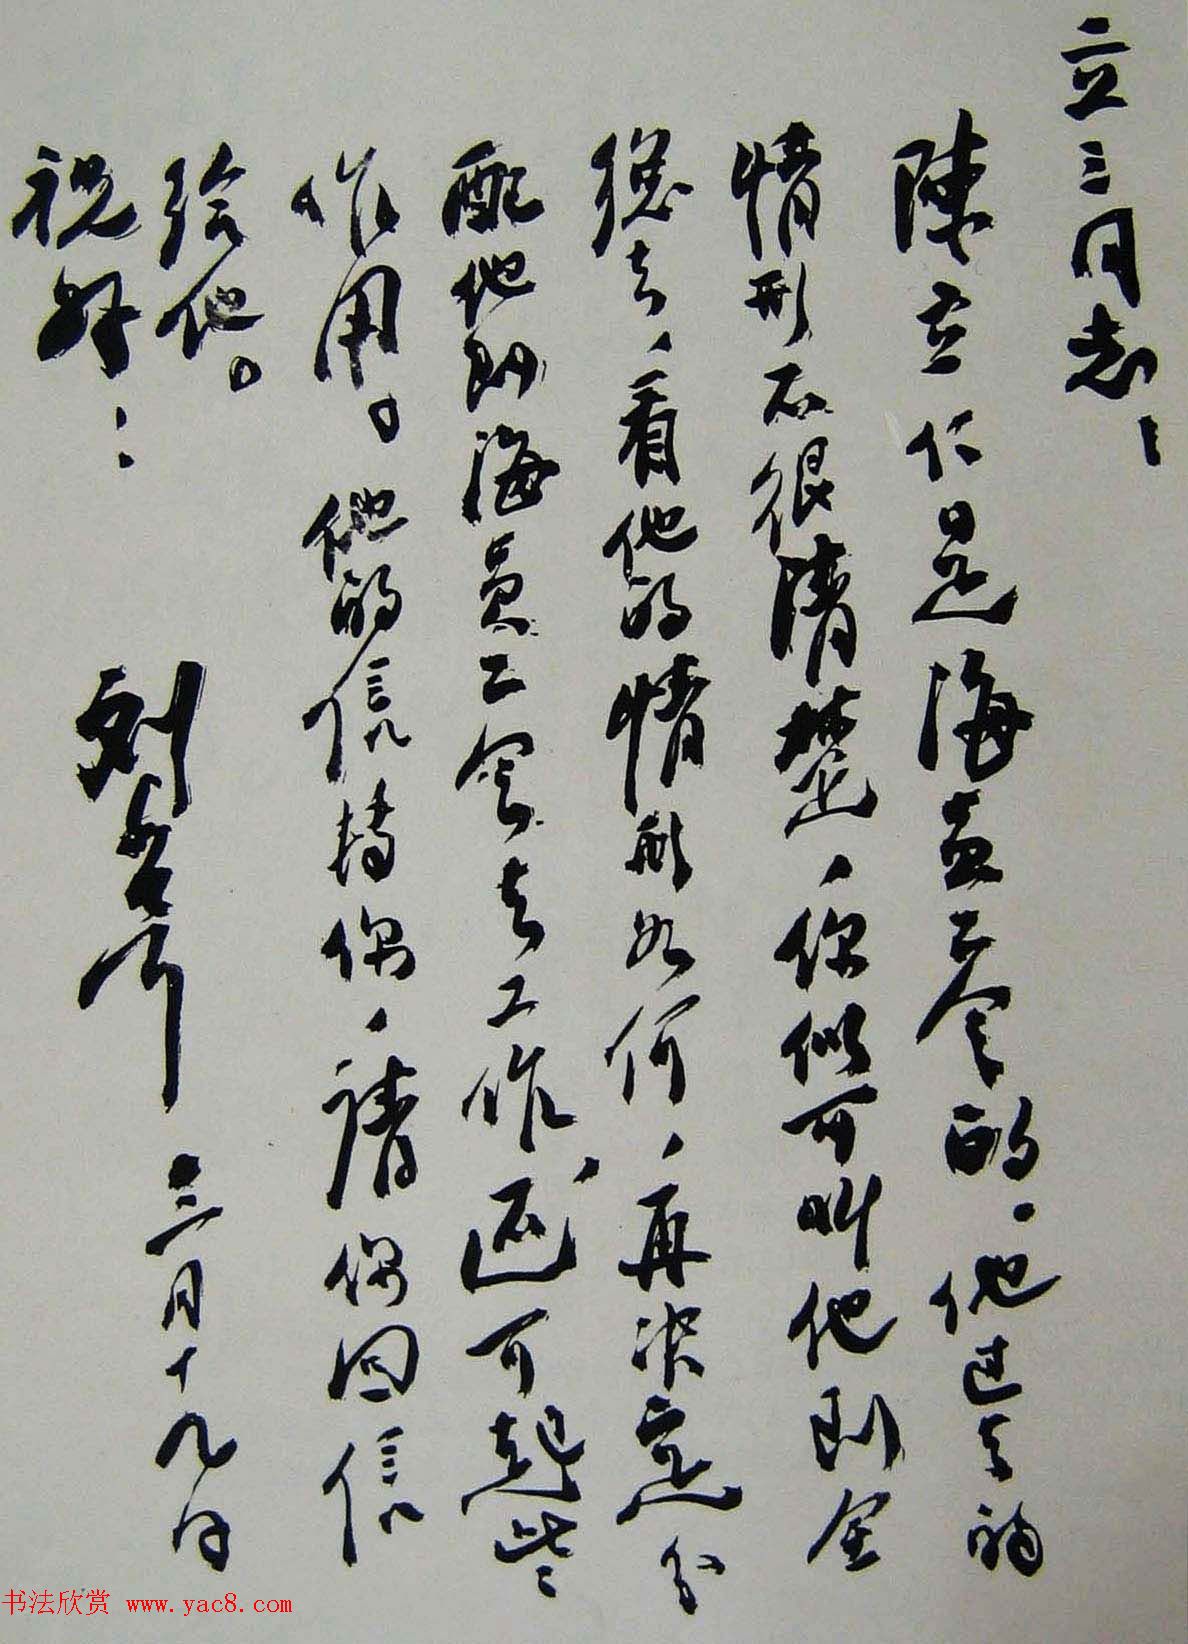 立三同志：
陳立仁是海員工会的。他过去的
情形不很清楚，你似可叫他到全
總去，看他的情形如何，再决定分
配他到海員工会去工作，还可起些
作用。他的信轉你，請你回信
给他。
祝好！
刘少奇
三月十九日
书法欣赏 www.yac8.com